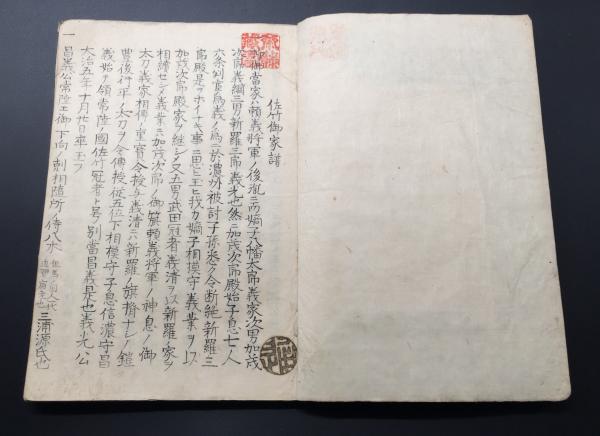 佐竹御家譜
抑佛當家ハ頼義将軍ノ後胤ニ而嫡子八幡太郎義家次男加茂
次郎義綱三男新羅三郎義光也然ニ加茂次郎殿始子息七人
六条判官為義ノ為ニ於濃州被討子孫悉ク令断絶新羅三
郎殿是ヲホイナキ事ニ思ヒ玉ヒ我カ嫡子相模守義業ヲ以
加茂次郎殿家ヲ継シメ又五男武田冠者義清ヲ以新羅ノ家ヲ
相続セシメ義業ニ加茂次郎ノ御簱頼義将軍ノ神息ノ御
太刀義家相傳ノ重寳令授与義清ニハ新羅ノ旗楯ナシノ鎧
豊後行平ノ太刀ヲ令傳授従五位下相模守子息信濃守昌
義始テ領常陸ノ國佐竹冠者ト号別當昌義是也義光公
大治五年十月廿日卆玉フ
一昌義公常陸エ御下向ノ刻相随所ノ侍八木
三浦源氏也